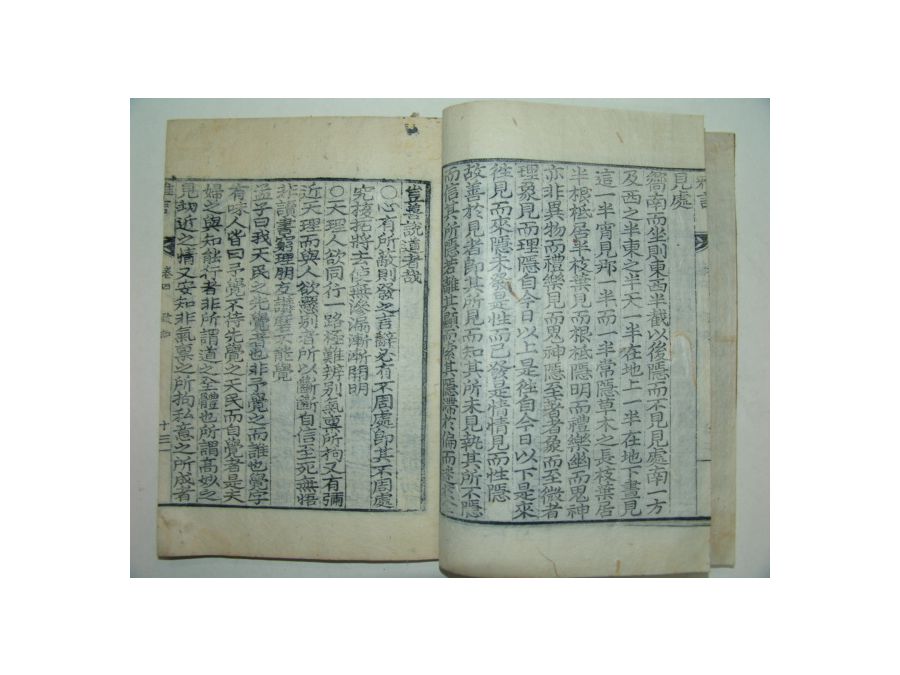 雅言
見處
嚮南而坐則東西半截以後隱而不見見處南一方
及西之半東之半天一半在地上一半在地下晝見
這一半宵見那一半而一半常隱草木之長枝葉居
半根柢居半枝葉見而根柢隱明而禮樂幽而鬼神
亦非異物而禮樂見而鬼神隱至著者象而至微者
理象見而理隱自今日以上是徃自今日以下是來
徃見而來隱未發是性而已發是情情見而性隱
故善於見者即其所見而知其所未見執其所不隱
而信其所隱若離其顯而索其隱滯於偏而
豈善說道者哉
○心有所蔽則發之言辭必有不周處即其不周處
究極拓將去使無滲漏漸漸開明
○天理人欲同行一路極難辨別氣稟所拘又有彌
近天理而與人欲懸別者所以斷斷自信至死無悟
非讀書窮理朋友講磨不能覺
孟子曰我天民之先覺者也非予覺之而誰也覺字
有味若曰予覺不待先覺之天民而自覺者是夫
婦之與知能行者非所謂道之全體也所謂高妙之
見切近之情又安知非氣稟之所拘私意之所成者
雅言
卷四
十三